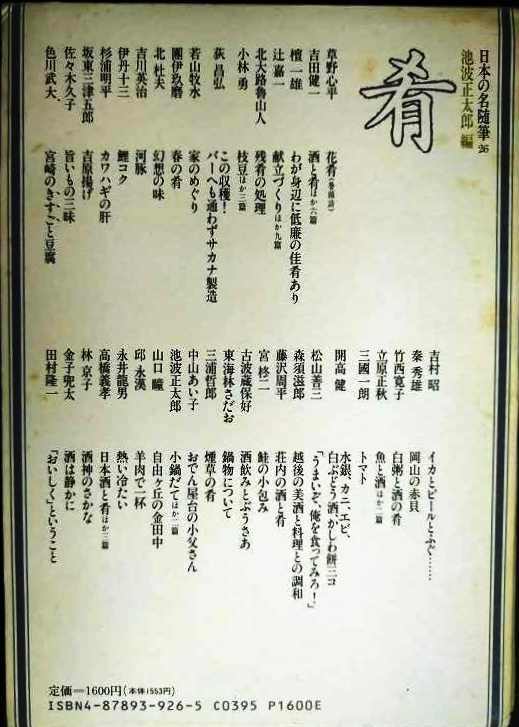 日本の名随筆26
池波正太郎 編
肴
草野心平 花肴(巻頭詩)
吉田健一 酒と肴ほか六篇
檀一雄 わが身辺に低廉の佳肴あり
辻嘉一 献立づくりほか九篇
北大路魯山人 残肴の処理
小林勇 枝豆ほか三篇
荻昌弘 この収穫!
バーへも通わずサカナ製造
若山牧水 家のめぐり
團伊玖磨 春の肴
北杜夫 幻想の味
吉川英治 河豚
伊丹十三 鯉コク
杉浦明平 カワハギの肝
坂東三津五郎 吉原揚げ
佐々木久子 旨いもの三昧
色川武大 宮崎のきすごと豆腐
吉村昭 イカとビールとふぐ……
秦秀雄 岡山の赤貝
竹西寛子 白粥と酒の肴
立原正秋 魚と酒ほか二篇
三國一朗 トマト
開高健 水銀、カニ、エビ、
白ぶどう酒、かしわ餅三コ
松山善三 「うまいぞ、俺を食ってみろ!」
森須滋郎 越後の美酒と料理との調和
藤沢周平 荘内の酒と肴
宮柊二 鮭の小包み
古波蔵保好 酒飲みとぶうさあ
東海林さだお 鍋物について
三浦哲郎 煙草の肴
中山あい子 おでん屋台の小父さん
池波正太郎 小鍋だてほか二篇
山口瞳 自由ヶ丘の金田中
邱永漢 羊肉で一杯
永井龍男 熱い冷たい
高橋義孝 日本酒と肴ほか三篇
林京子 酒神のさかな
金子兜太 酒は静かに
田村隆一 「おいしく」ということ
定価=1600円(本体1553円)
ISBN4-87893-926-5 C0395 P1600E